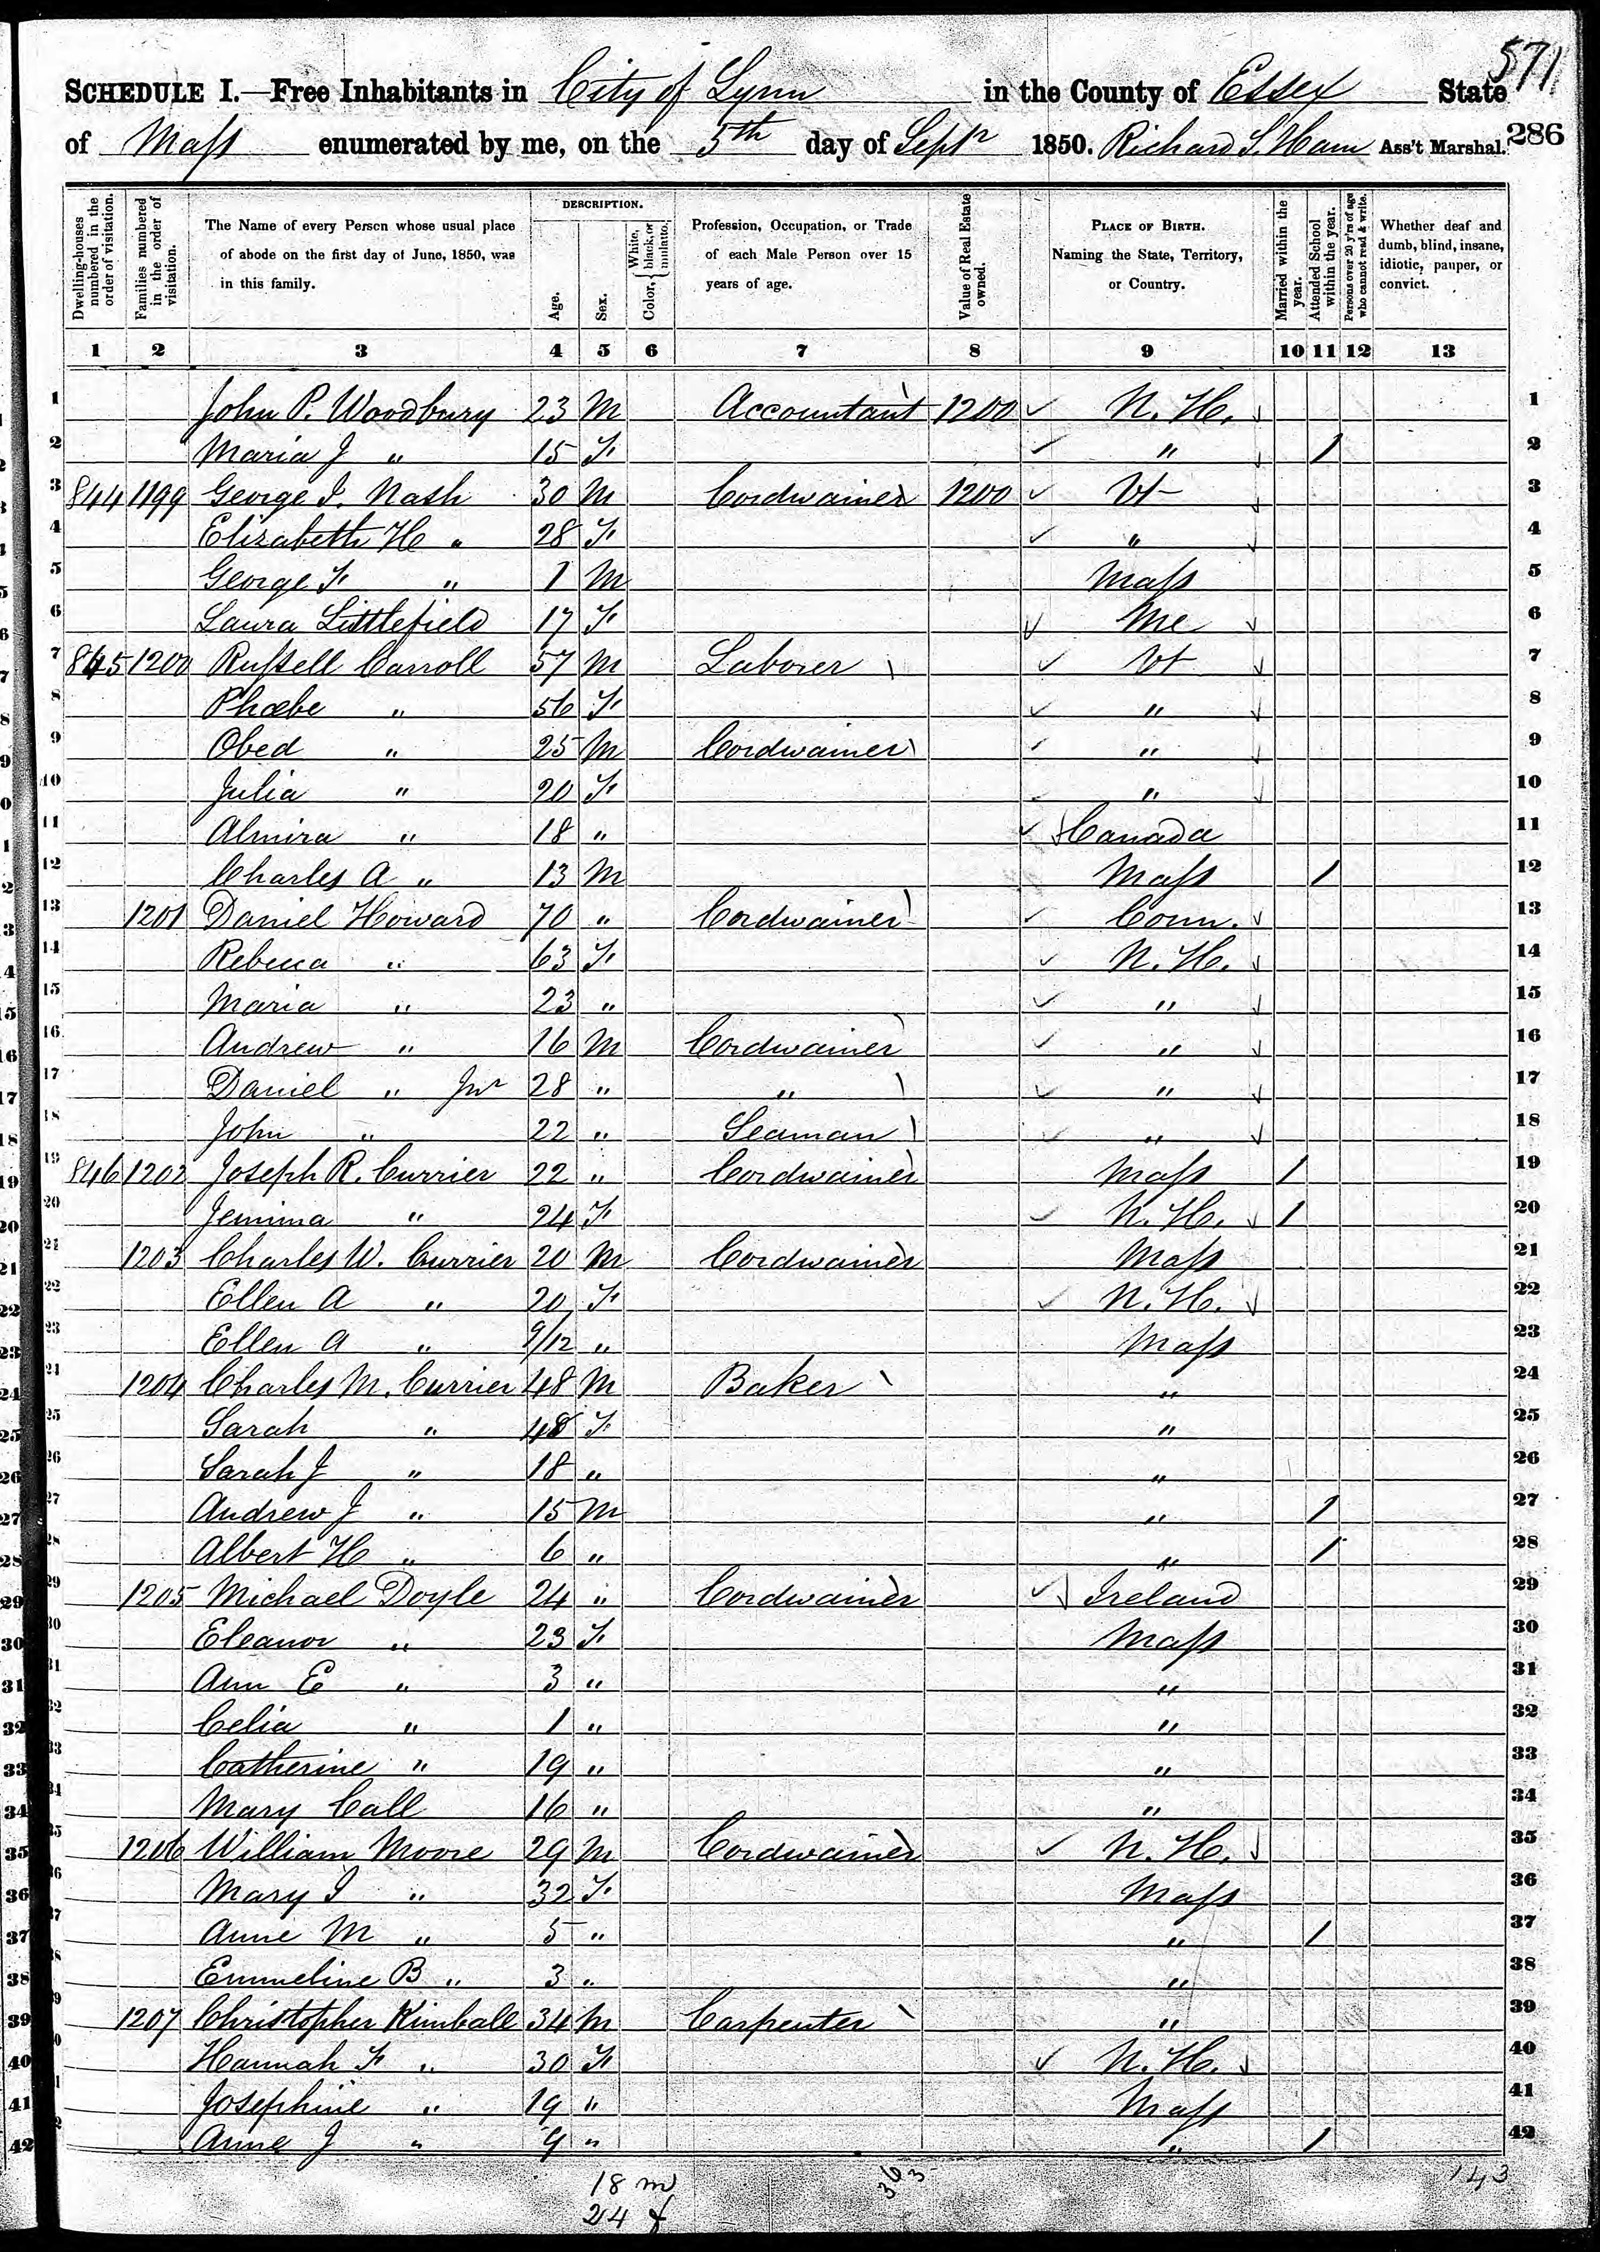 571
SCHEDULE I.—Free Inhabitants in City of Lynn in the County of Essex State
of Mass enumerated by me, on the 5th day of Septr 1850. Richard S. Ham Ass't Marshal. 286
Dwelling-houses numbered in the order of visitation.
Families numbered in the order of visitation.
The Name of every Person whose usual place of abode on the first day of June, 1850, was in this family.
DESCRIPTION.
Age.
Sex.
Color, White, black, or mulatto.
Profession, Occupation, or Trade of each Male Person over 15 years of age.
Value of Real Estate owned.
PLACE OF BIRTH. Naming the State, Territory, or Country.
Married within the year.
Attended School within the year.
Persons over 20 y'rs of age who cannot read & write.
Whether deaf and dumb, blind, insane, idiotic, pauper, or convict.
1 2 3 4 5 6 7 8 9 10 11 12 13
1 John P. Woodbury 23 M Accountant 1200 N. H. 1
2 Maria J " 15 F " 1 2
3 844 1199 George I. Nash 30 M Cordwainer 1200 Vt 3
4 Elizabeth H " 28 F " 4
5 George F " 1 M Mass 5
6 Laura Littlefield 17 F Me 6
7 845 1200 Russell Carroll 57 M Laborer Vt 7
8 Phœbe " 56 F " 8
9 Obed " 25 M Cordwainer " 9
10 Julia " 20 F " 10
11 Almira " 18 " Canada 11
12 Charles A " 13 M Mass 1 12
13 1201 Daniel Howard 70 " Cordwainer Conn. 13
14 Rebecca " 63 F N. H. 14
15 Maria " 23 " " 15
16 Andrew " 16 M Cordwainer " 16
17 Daniel " Jnr 28 " " " 17
18 John " 22 " Seaman " 18
19 846 1202 Joseph R. Currier 22 " Cordwainer Mass 1 19
20 Jemima " 24 F N. H. 1 20
21 1203 Charles W. Currier 20 M Cordwainer Mass 21
22 Ellen A " 20 F N. H. 22
23 Ellen A " 9/12 " Mass 23
24 1204 Charles M. Currier 48 M Baker " 24
25 Sarah " 48 F " 25
26 Sarah J " 18 " " 26
27 Andrew J " 15 M " 1 27
28 Albert H " 6 " " 1 28
29 1205 Michael Doyle 24 " Cordwainer Ireland 29
30 Eleanor " 23 F Mass 30
31 Ann E " 3 " " 31
32 Celia " 1 " " 32
33 Catherine " 19 " " 33
34 Mary Call 16 " " 34
35 1206 William Moore 29 M Cordwainer N. H. 35
36 Mary I " 32 F Mass 36
37 Anne M " 5 " " 1 37
38 Emmeline B " 3 " " 38
39 1207 Christopher Kimball 34 M Carpenter " 39
40 Hannah F " 30 F N. H. 40
41 Josephine " 19 " Mass 41
42 Anne J " 9 " " 1 42
18 m 143
24 f